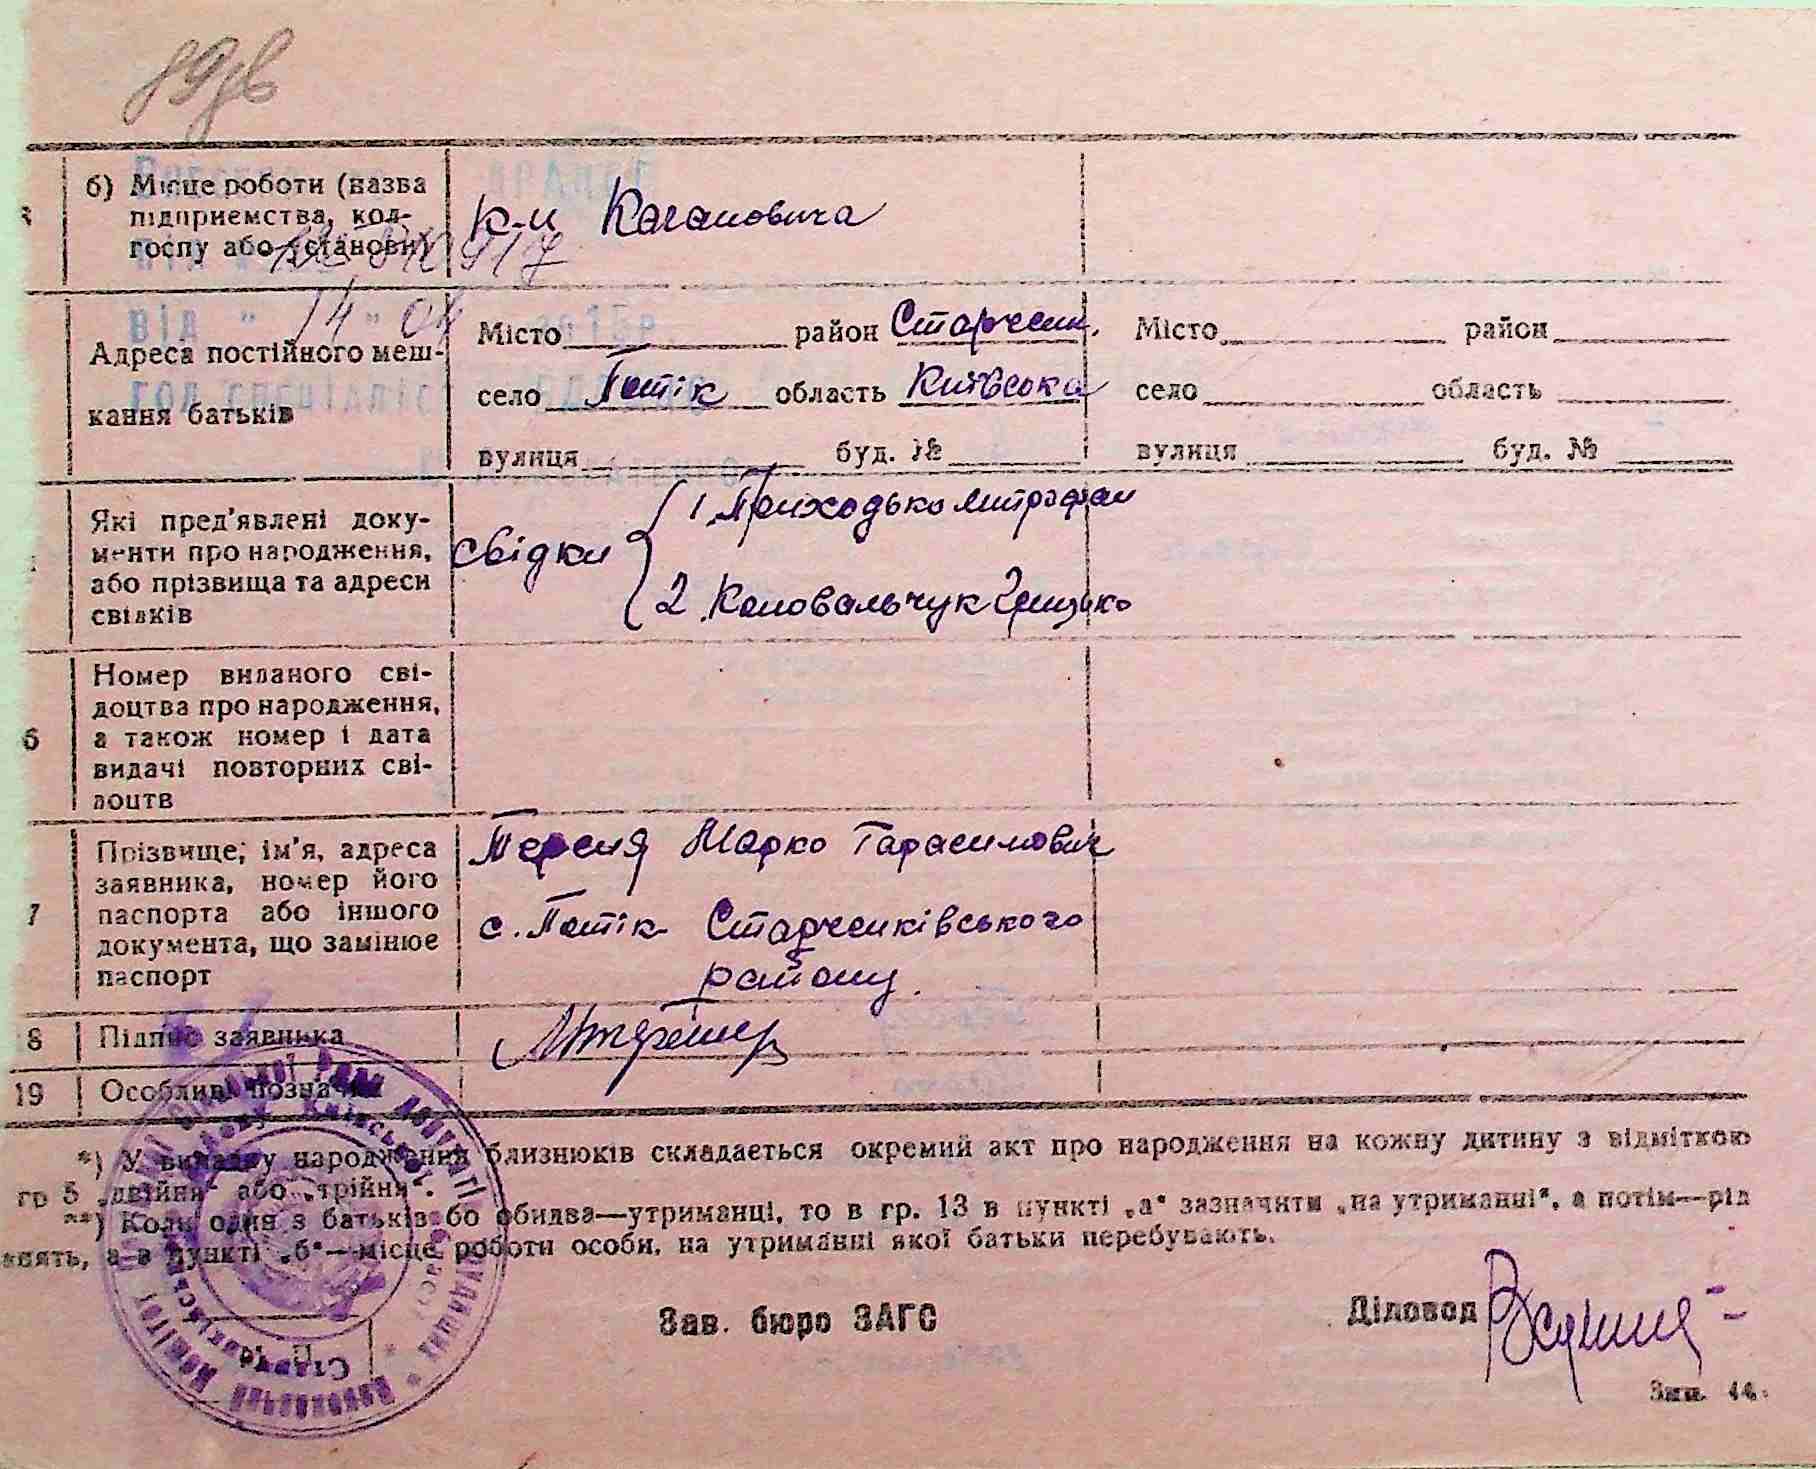 б) Місце роботи (назва
підприємства, кол-
госпу або установи)
к-и Кагановича
14 04
Адреса постійного меш-
кання батьків
Місто район Старченк.
село Потік область Київська
вулиця буд. №
Місто район
село область
вулиця буд. №
Які пред'явлені доку-
менти про народження,
або прізвища та адреси
свідків
свідки
1. Приходько Митрофан
2. Коновальчук Грицько
6
Номер виданого сві-
доцтва про народження,
а також номер і дата
видачі повторних сві-
доцтв
7
Прізвище, ім'я, адреса
заявника, номер його
паспорта або іншого
документа, що замінює
паспорт
Марко Гарасимович
с. Потік Старченківського
району.
8 Підпис заявника
19 Особливі позначки
*) У випадку народження близнюків складається окремий акт про народження на кожну дитину з відміткою
гр 5 „двійня“ або „трійня“.
**) Коли один з батьків або обидва—утриманці, то в гр. 13 в пункті „а“ зазначити „на утриманні“, а потім—рід
занять, а в пункті „б“—місце роботи особи, на утриманні якої батьки перебувають.
Зав. бюро ЗАГС
Діловод
Зам. 44.